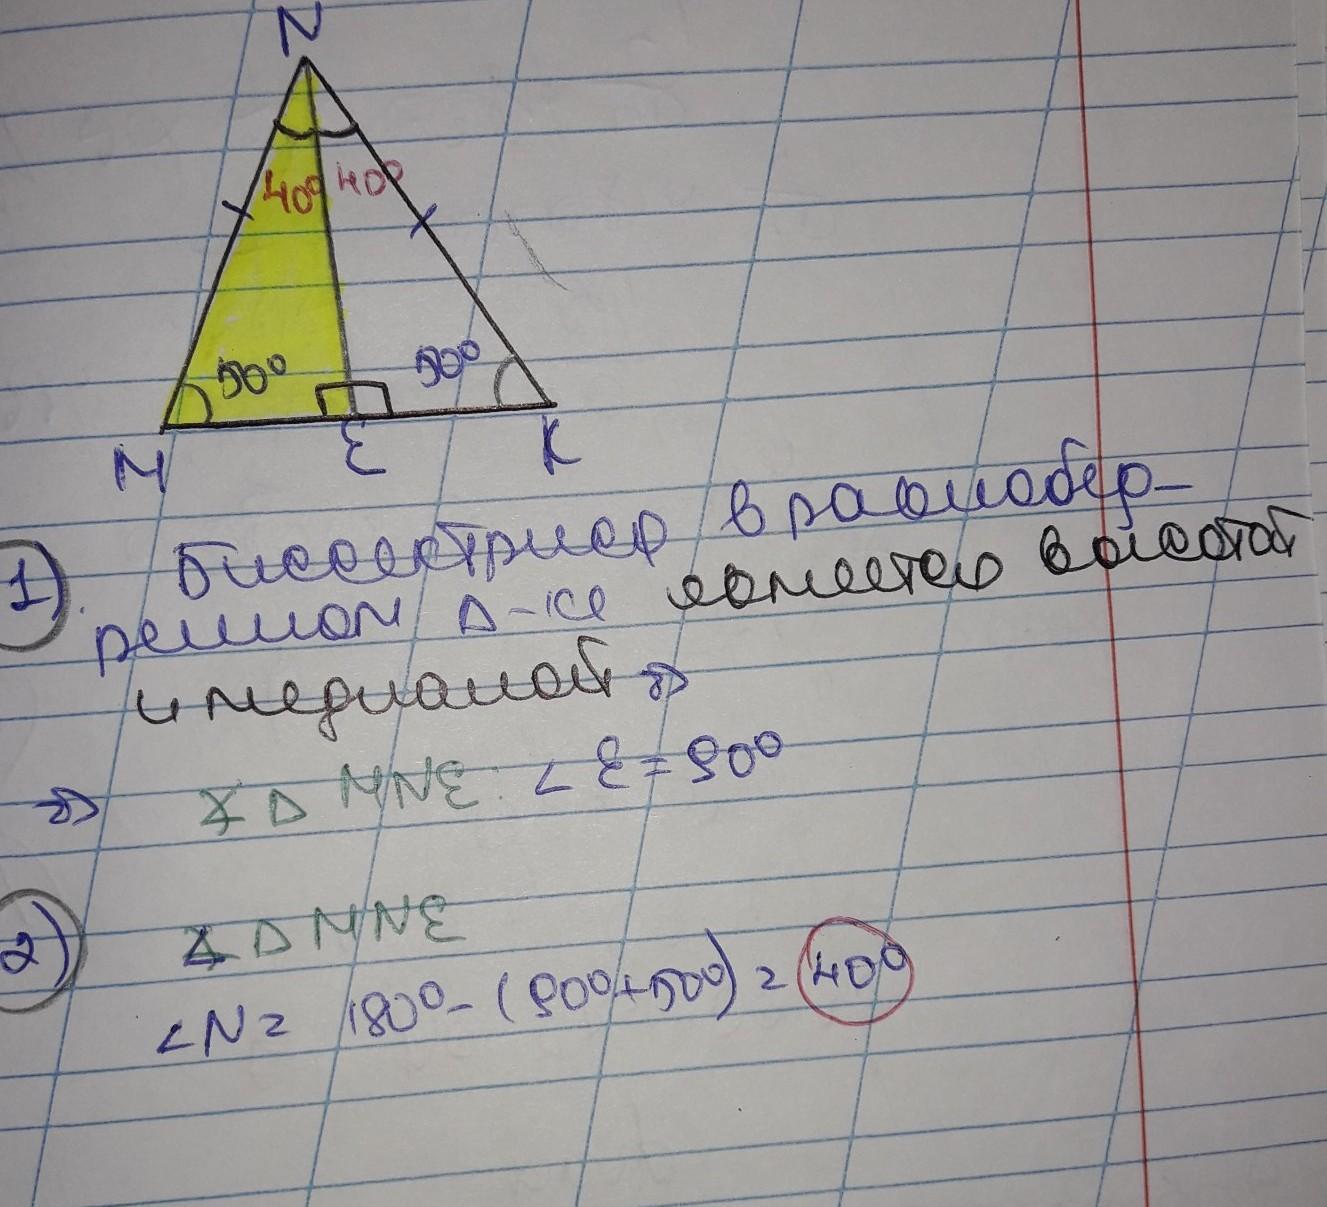 N
40° 40°
50° 50°
M E K
1). Биссектриса в равнобед-
ренном Δ-ке является высотой
и медианой ⇒
⇒ ∡ Δ MNE: ∠ E = 90°
2) ∡ Δ MNE
∠N = 180° - (90° + 50°) = 40°